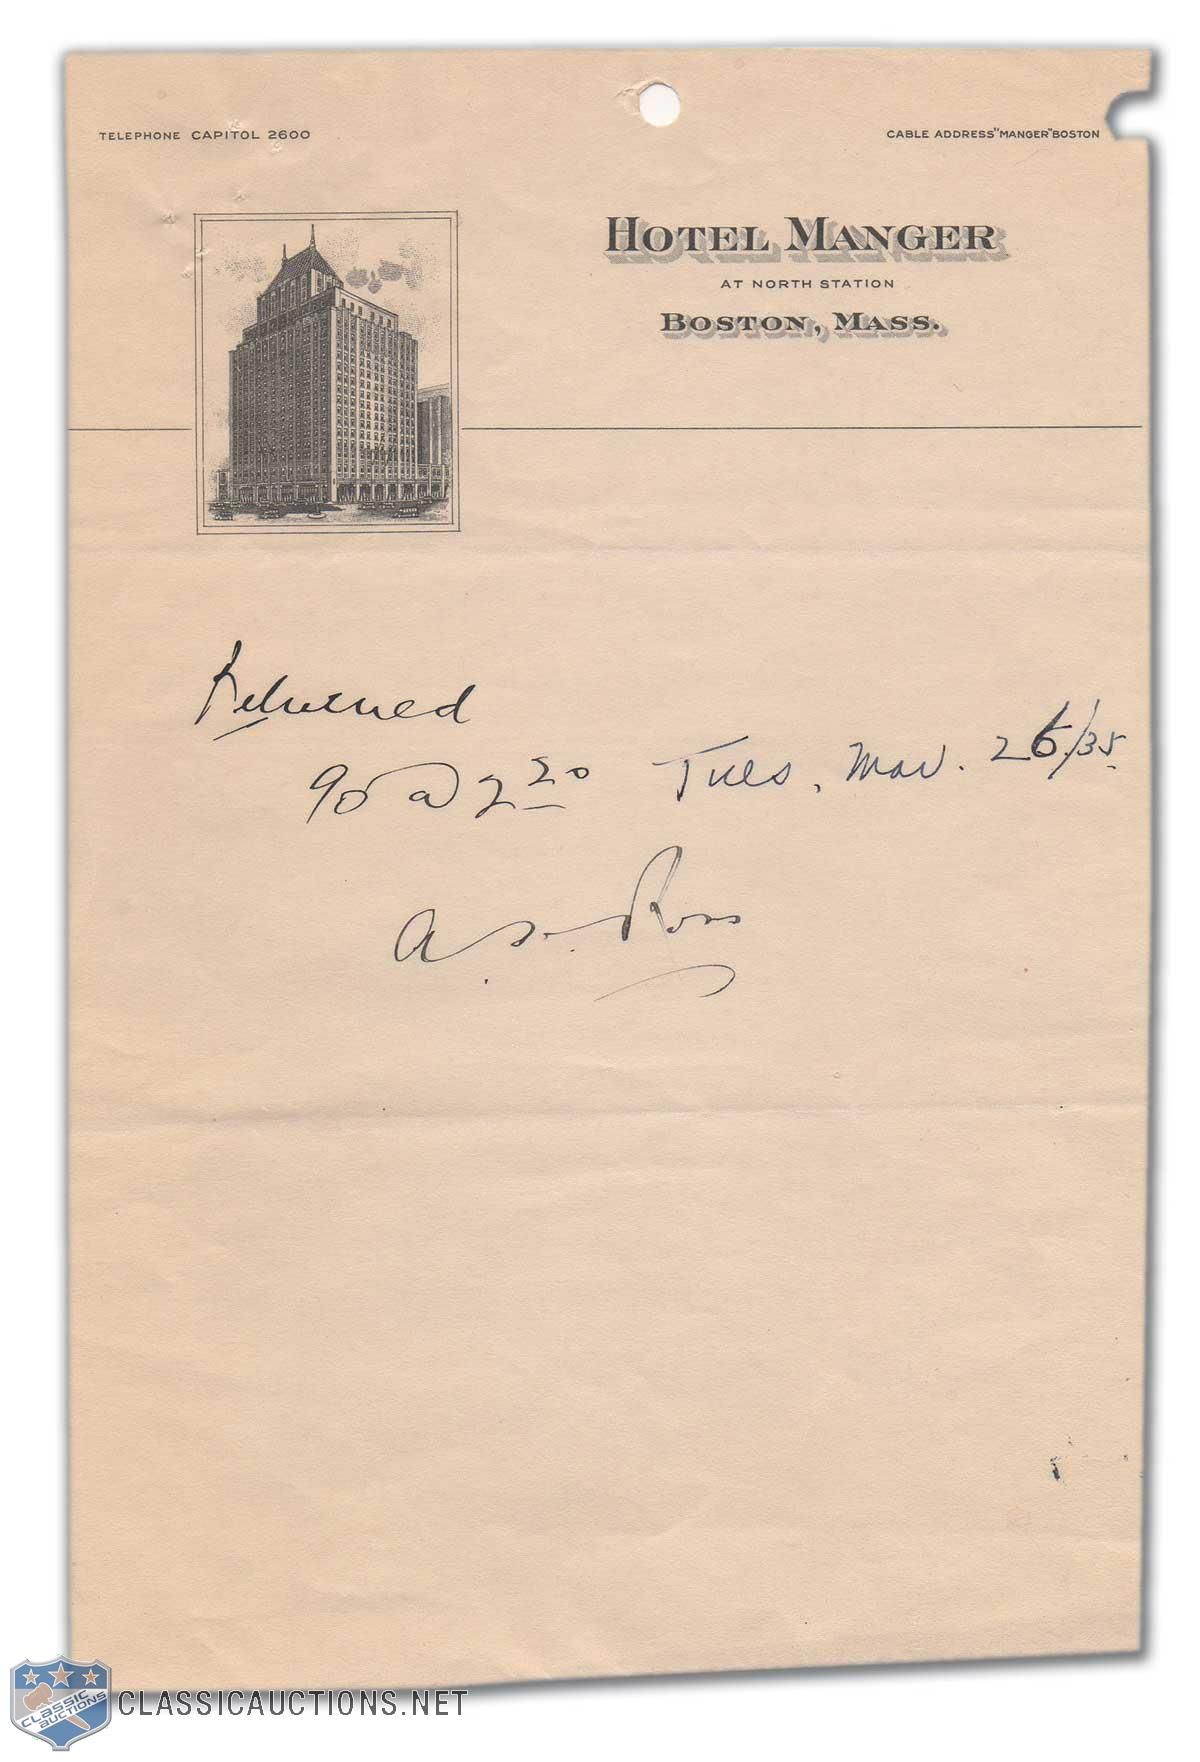 TELEPHONE CAPITOL 2600
CABLE ADDRESS "MANGER" BOSTON
HOTEL MANGER
AT NORTH STATION
BOSTON, MASS.
Returned
90 @ 2 20 Tues, Mar. 26/35
A. S. Ross
CLASSIC AUCTIONS
CLASSICAUCTIONS.NET